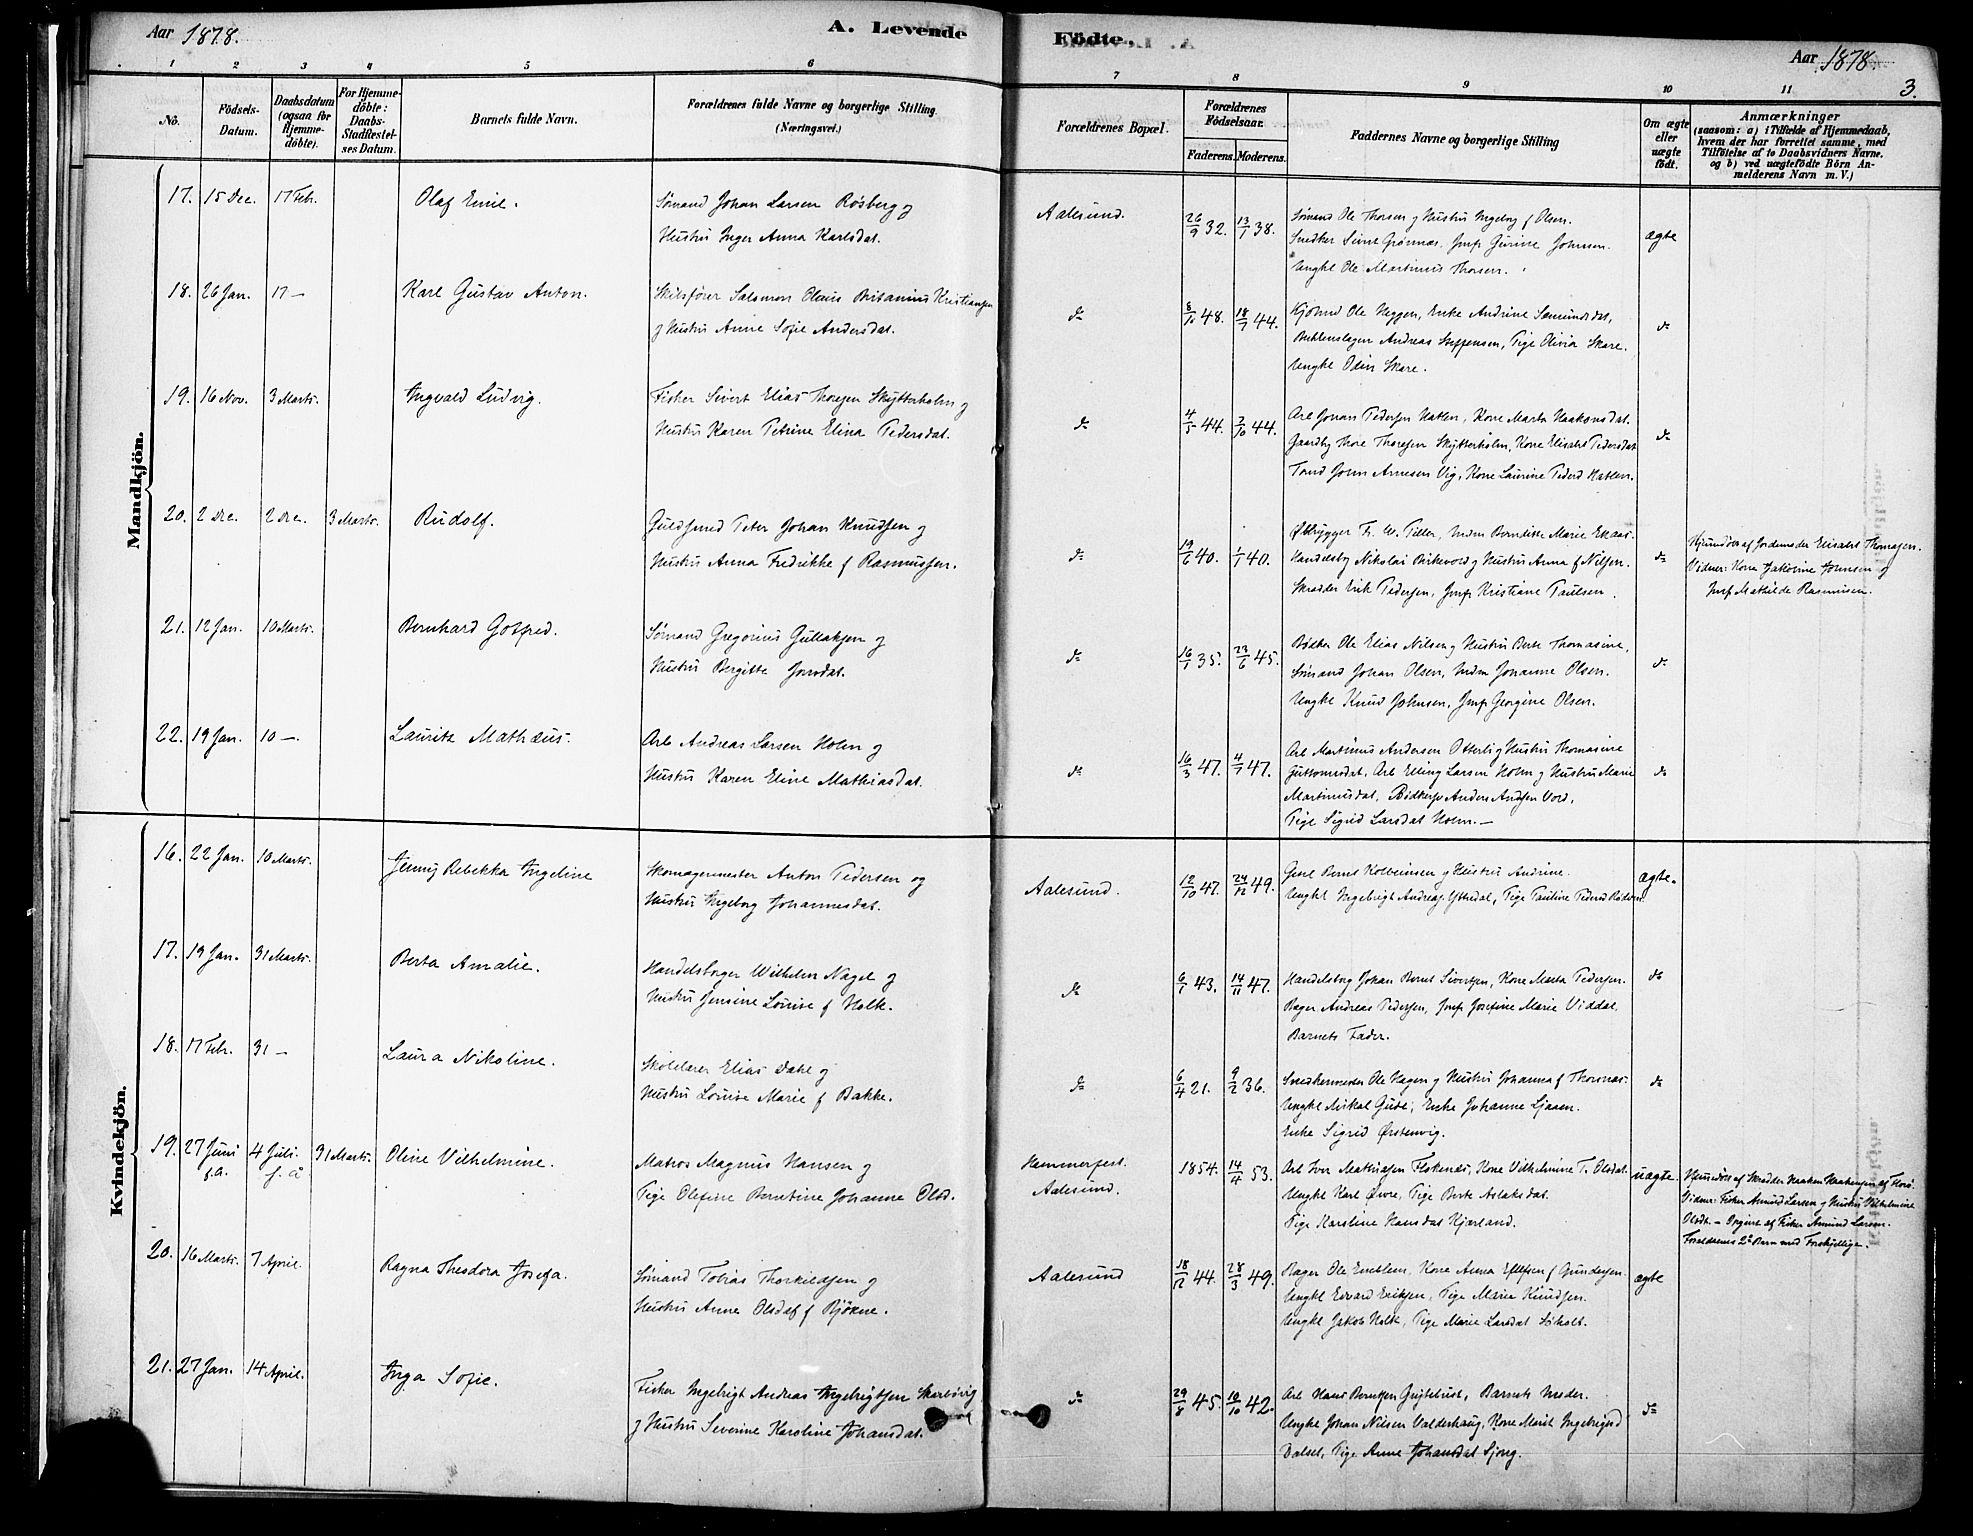 Aar 1878.
A. Levende
Födte.
Aar 1878.
3.
1 2 3 4 5 6 7 8 9 10 11
No.
Födsels-Datum.
Daabsdatum (ogsaa for Hjemme-döbte).
For Hjemme-döbte: Daabs-Stadfæstel-ses Datum.
Barnets fulde Navn.
Forældrenes fulde Navne og borgerlige Stilling
(Næringsvei.)
Forældrenes Bopæl.
Forældrenes Födselsaar.
Faderens. Moderens.
Faddernes Navne og borgerlige Stilling
Om ægte eller uægte födt.
Anmærkninger
(saasom: a) i Tilfælde af Hjemmedaab,
hvem der har forrettet samme, med
Tilföielse af to Daabsvidners Navne.
og b) ved uægtefödte Börn An-
melderens Navn m. V.)
Mandkjön.
17. 15 Dec. 17 Febr. Olaf Emil.
Sømand Johan Larsen Røsberg og
Hustru Inger Anna Karlsdat.
Aalesund. 26/9 32. 13/1 38.
Sømand Ole Thorsen og Hustru Ingeborg f Olsen.
Snedker Sivert Grønnæs. Jmf Gurine Johnsen.
Ungkl Ole Martinus Thorsen.
ægte
18. 26 Jan. 17 — Karl Gustav Anton.
Skibsfører Salomon Olaus Britanius Kristiansen
og Hustru Anne Sofie Andersdat.
do 48. 18/7 44.
Ole Heggen, Enke Andrine
Andreas Steffensen, Pige Olivia Skare.
Ungkl Olin Skare.
do
19. 16 Nov. 3 Marts. Ingvald Ludvig.
Fisker Sivert Elias Thoresen Skytterholm og
Hustru Karen Petrine Elina Pedersdat.
do 4/5 44. 3/10 44.
Arb Johan Pedersen Hatlen, Kone Marta Haakonsdat.
Gaardbr Thore Thoresen Skytterholm, Kone Elisabet Pedersdat
John Arnesen Vig, Kone Laurine Pedersd Hatlen.
do
20. 2 Dec. 2 Dec. 3 Marts. Rudolf.
Guldsmed Peter Johan Knudsen og
Hustru Anna Fredrikke f Rasmussen.
do 19/6 40. 1/1 40.
Ølbrygger Fr. W. Tiller, Madm Berndikte Marie
Handelsb Nikolai Birkevold og Hustru Anna f Nilsen.
Skrædder Erik Pedersen, Jmf Kristiane Paulsen.
do
Hjemdøbt af Jordemoder Elisabet Thomasen.
Vidner: Kone Jakobine Johnsen og
Jmf Mathilde Rasmussen.
21. 12 Jan. 10 Marts. Bernhard Gotfred.
Sømand Gregorius Gullaksen og
Hustru Bergitte Jonsdat.
do 16/1 35. 23/6 45.
Bødker Ole Elias Nilsen og Hustru Berte Thomasine,
Sømand Johan Olsen, Madm Johanne Olsen.
Ungkl Knud Johnsen, Jmf Georgine Olsen.
do
22. 19 Jan. 10 — Lauritz Mathæus.
Arb Andreas Larsen Holm og
Hustru Karen Eline Mathiasdat.
do 16/3 47. 4/7 47.
Arb Martinus Andersen Otterli og Hustru Thomasine
Guttormsdat, Arb Elling Larsen Holm og Hustru Marie
Martinusdat, Anders Vord,
Pige Sigrid Larsdat Holm. —
do
Kvindekjön.
16. 22 Jan. 10 Marts. Jenny Rebekka Ingeline
Skomagermester Anton Pedersen og
Hustru Ingeborg Johannesdat.
Aalesund. 12/10 47. 24/12 49.
Bernt Kolbeinsen og Hustru Andrine.
Ungkl Ingebrigt Andreas Yttredal, Pige Pauline Pedersd
ægte.
17. 19 Jan. 31 Marts. Berta Amalie.
Handelsborger Wilhelm Nagel og
Hustru Jensine Louise f Holk.
do 6/1 43. 14/11 47.
Handelsborg Johan Bernt Sivertsen, Kone Marta Pedersen.
Bager Andreas Pedersen, Jmf Josefine Marie Viddal,
Barnets Fader.
do
18. 17 Febr. 31 — Laura Nikoline.
Skolelærer Elias Dahl og
Hustru Louise Marie f Bakke.
do 6/4 21. 9/2 36.
Snedkermester Ole Hagen og Hustru Johanna f Thorsnæs.
Ungkl Mikal Gude, Enke Johanne Ljaaen.
Enke Sigrid Ørstenvig.
do
19. 27 Juni f.A. 4 Juli f.å 31 Marts. Oline Vilhelmine.
Matros Magnus Hansen og
Pige Olefine Berntine Johanne Olsd.
Hammerfest.
Aalesund.
1854. 14/4 53.
Arb Iver Mathiasen Flokenæs, Kone Vilhelmine T. Olsdat.
Ungkl Karl Øvre, Pige Berte Aslaksdat.
Pige Karoline Hansdat Kjærland.
uægte.
Hjemdøbt af Skrædder Haaken Haakensen af Florø.
Vidner: Fisker Amund Larsen og Hustru Vilhelmine
Olsdt. — Opgivet af Fisker Amund Larsen.
Forældrenes 2det Barn med Forskjellige.
20. 16 Marts. 7 April. Ragna Theodora Josefa.
Sømand Tobias Thorkildsen og
Hustru Anne Olsdat f Bjökne.
Aalesund 18/12 44. 28/3 49.
Bager Ole Emblem, Kone Anna f Gundersen.
Ungkl Edvard Eriksen, Pige Marie Knudsen.
Ungkl Jakob Holk, Pige Marie Larsdat Sjøholt.
ægte
21. 27 Jan. 14 April. Inga Sofie.
Fisker Ingebrigt Andreas Ingebrigtsen Skarbøvig
og Hustru Severine Karoline Johansdat.
do 29/8 45. 10/10 42.
Arb Hans Berntsen, Barnets Moder.
Ungkl Johan Nilsen Valderhaug, Kone Marit Ingebrigtsd
Valset, Pige Anne Johansdat Sjong.
do